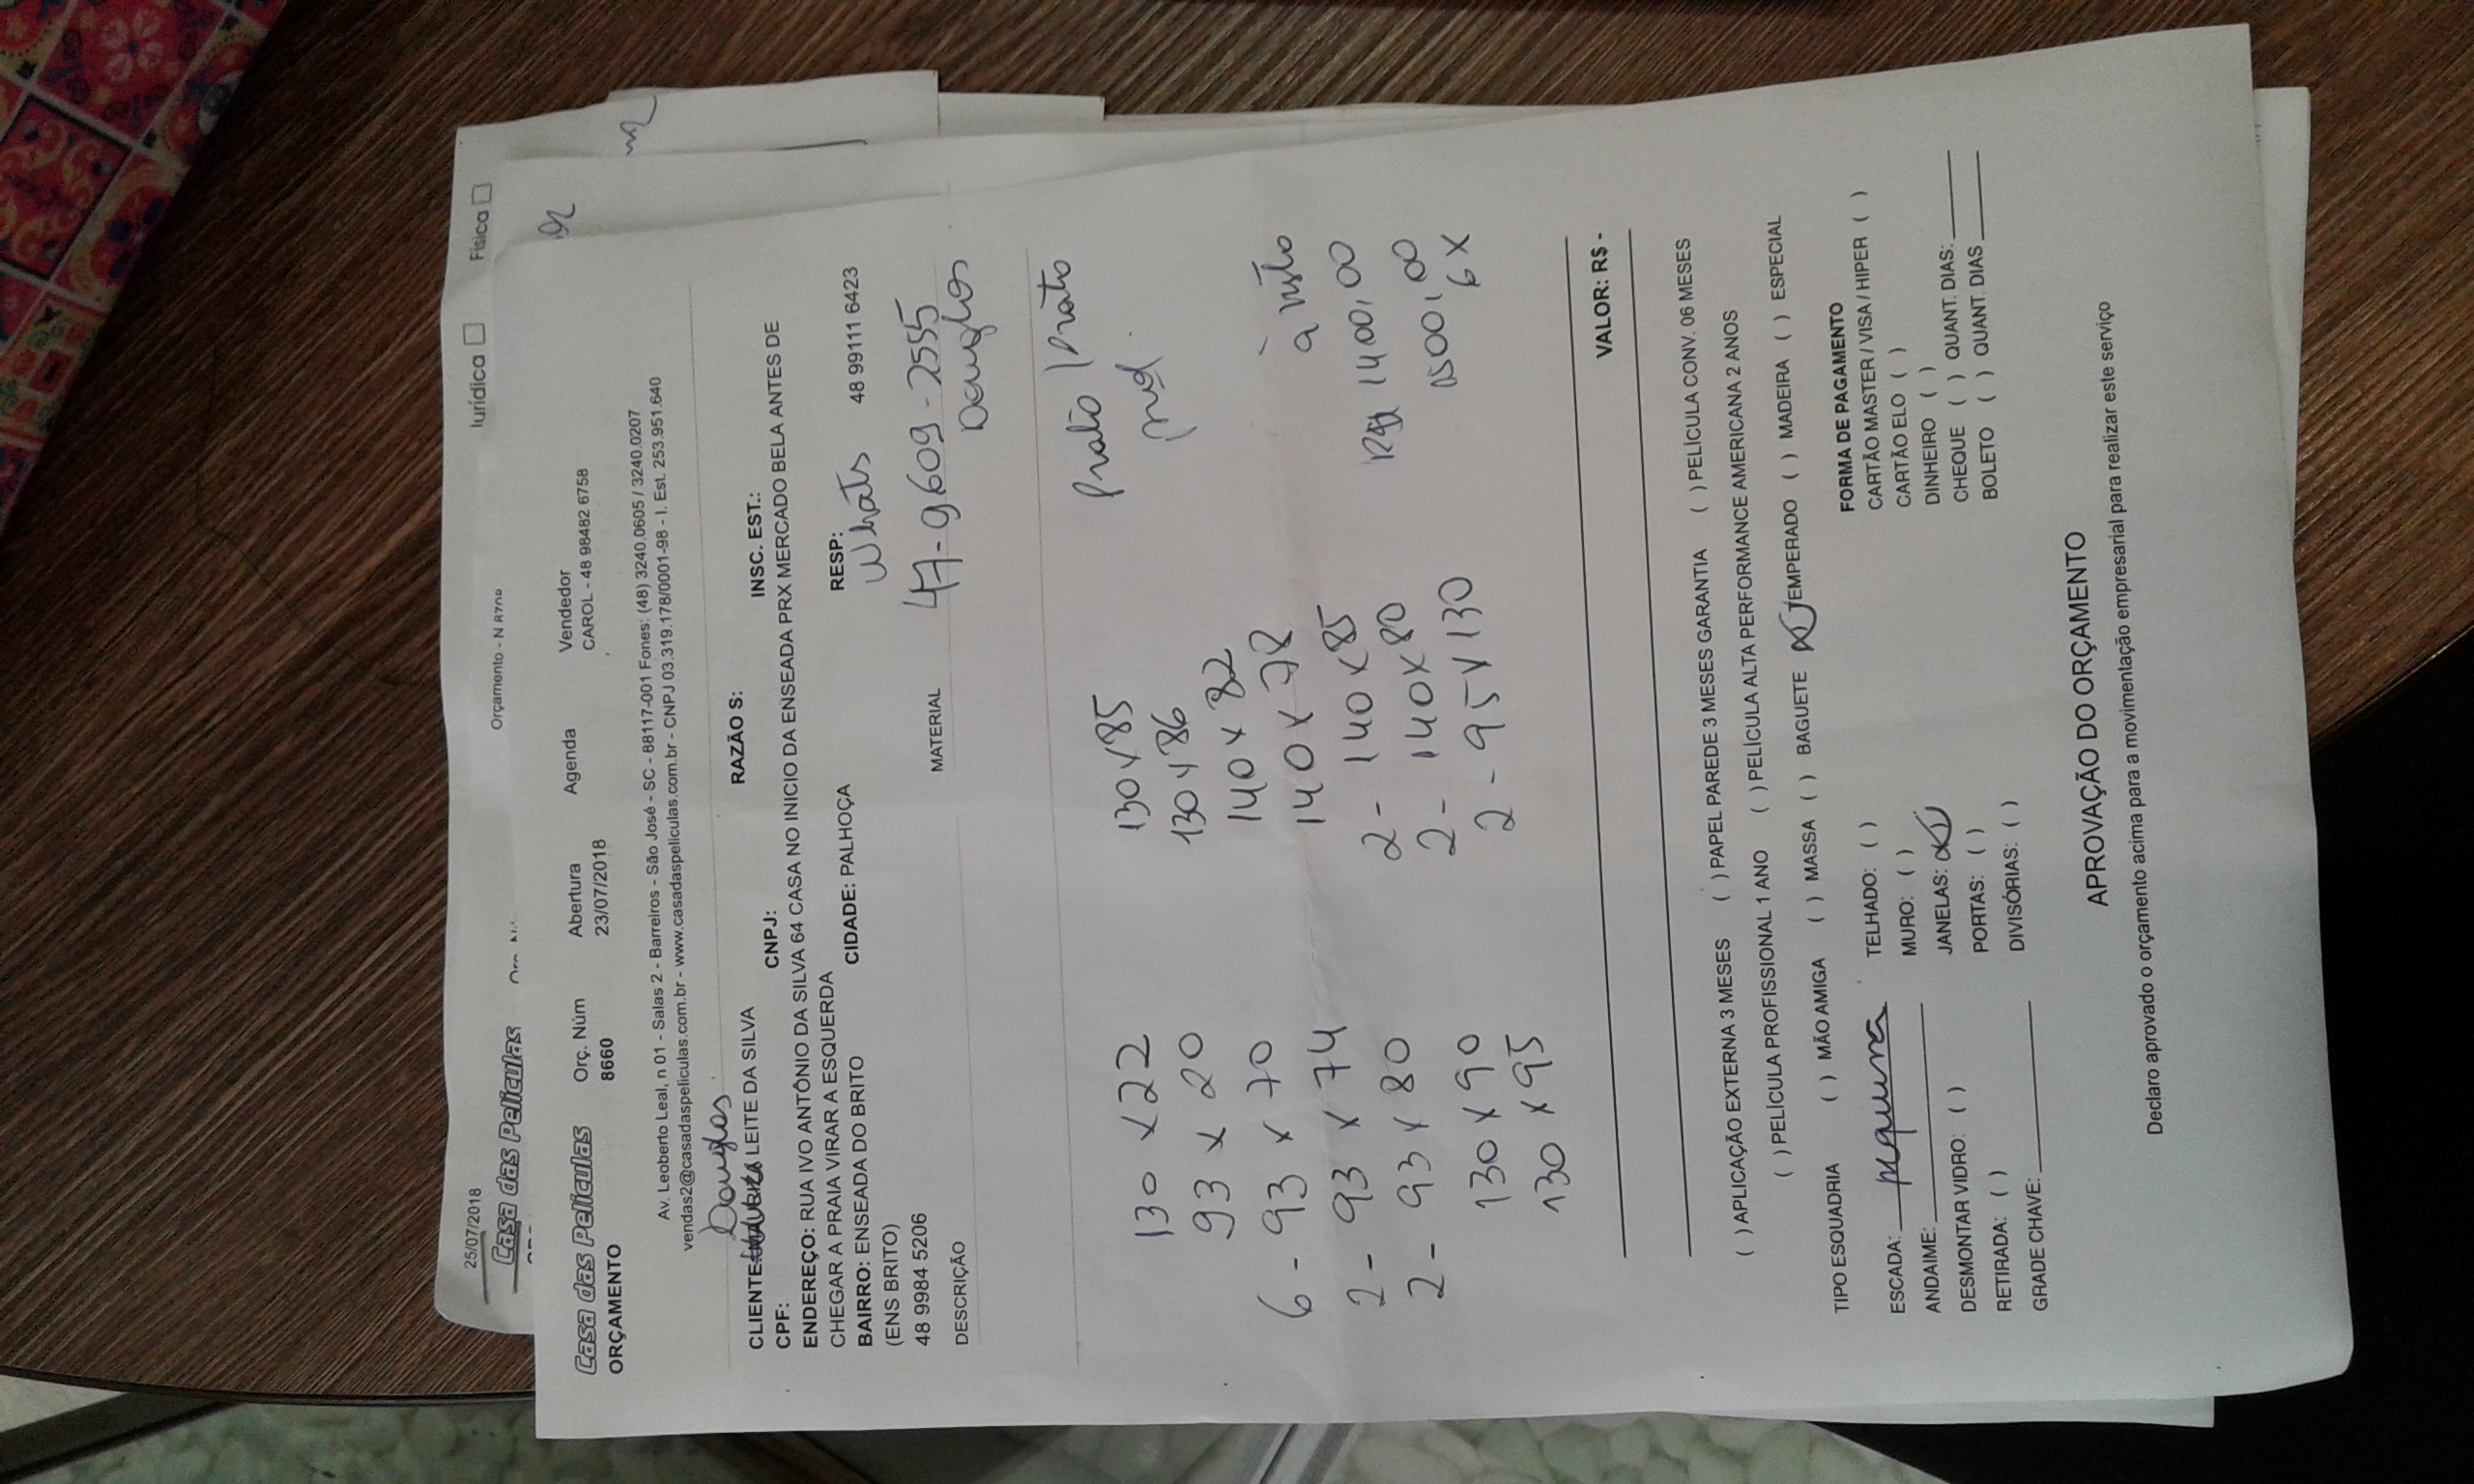 Jurídica Física
25/07/2018
Casa das Películas
Orçamento - N 8709
Casa das Películas
ORÇAMENTO
Orç. Núm
8660
Abertura
23/07/2018
Agenda
Vendedor
CAROL - 48 98482 6758
Av. Leoberto Leal, n 01 - Salas 2 - Barreiros - São José - SC - 88117-001 Fones: (48) 3240.0605 / 3240.0207
vendas2@casadaspeliculas.com.br - www.casadaspeliculas.com.br - CNPJ 03.319.178/0001-98 - I. Est. 253.951.640
Douglas
CLIENTE: LEITE DA SILVA RAZÃO S:
CPF: CNPJ: INSC. EST.:
ENDEREÇO: RUA IVO ANTÔNIO DA SILVA 64 CASA NO INICIO DA ENSEADA PRX MERCADO BELA ANTES DE
CHEGAR A PRAIA VIRAR A ESQUERDA
BAIRRO: ENSEADA DO BRITO CIDADE: PALHOÇA RESP: 48 99111 6423
(ENS BRITO)
Whats
48 9984 5206
47-9609-2555
DESCRIÇÃO MATERIAL
Douglas
Prata/Prata
130 x 22 130x85
93 x 20 130x86
6 - 93 x 70 140x82
140x78 à vista
2 - 93 x 74 2- 140x85 R$ 1400,00
2 - 93x80 2- 140x80 1500,00
130x90 2-95x130 6x
130x95
VALOR: R$ -
( ) APLICAÇÃO EXTERNA 3 MESES ( ) PAPEL PAREDE 3 MESES GARANTIA ( ) PELÍCULA CONV. 06 MESES
( ) PELÍCULA PROFISSIONAL 1 ANO ( ) PELÍCULA ALTA PERFORMANCE AMERICANA 2 ANOS
TIPO ESQUADRIA ( ) MÃO AMIGA ( ) MASSA ( ) BAGUETE (X) TEMPERADO ( ) MADEIRA ( ) ESPECIAL
ESCADA: pequena TELHADO: ( )
ANDAIME: MURO: ( )
DESMONTAR VIDRO: ( ) JANELAS: (X)
RETIRADA: ( ) PORTAS: ( )
GRADE CHAVE: DIVISÓRIAS: ( )
FORMA DE PAGAMENTO
CARTÃO MASTER / VISA / HIPER ( )
CARTÃO ELO ( )
DINHEIRO ( )
CHEQUE ( ) QUANT. DIAS:
BOLETO ( ) QUANT. DIAS
APROVAÇÃO DO ORÇAMENTO
Declaro aprovado o orçamento acima para a movimentação empresarial para realizar este serviço